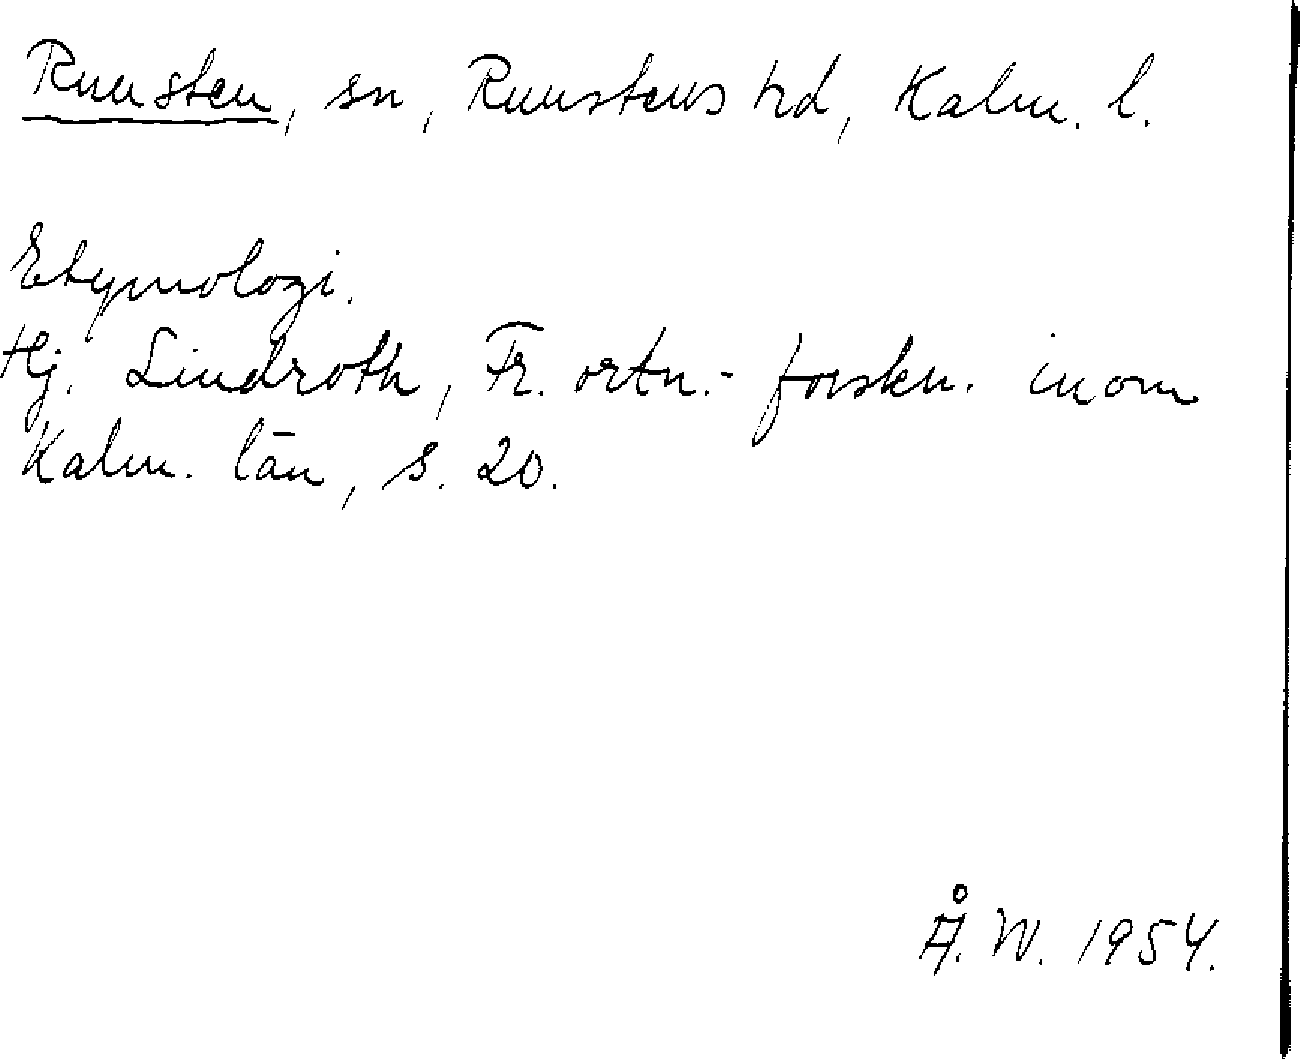 Runsten, sn, Runstens hd, Kalm. l.
Etymologi.
Hj. Lindroth, Fr. ortn.- forskn. inom
Kalm. län, s. 20.
Å. W. 1954.